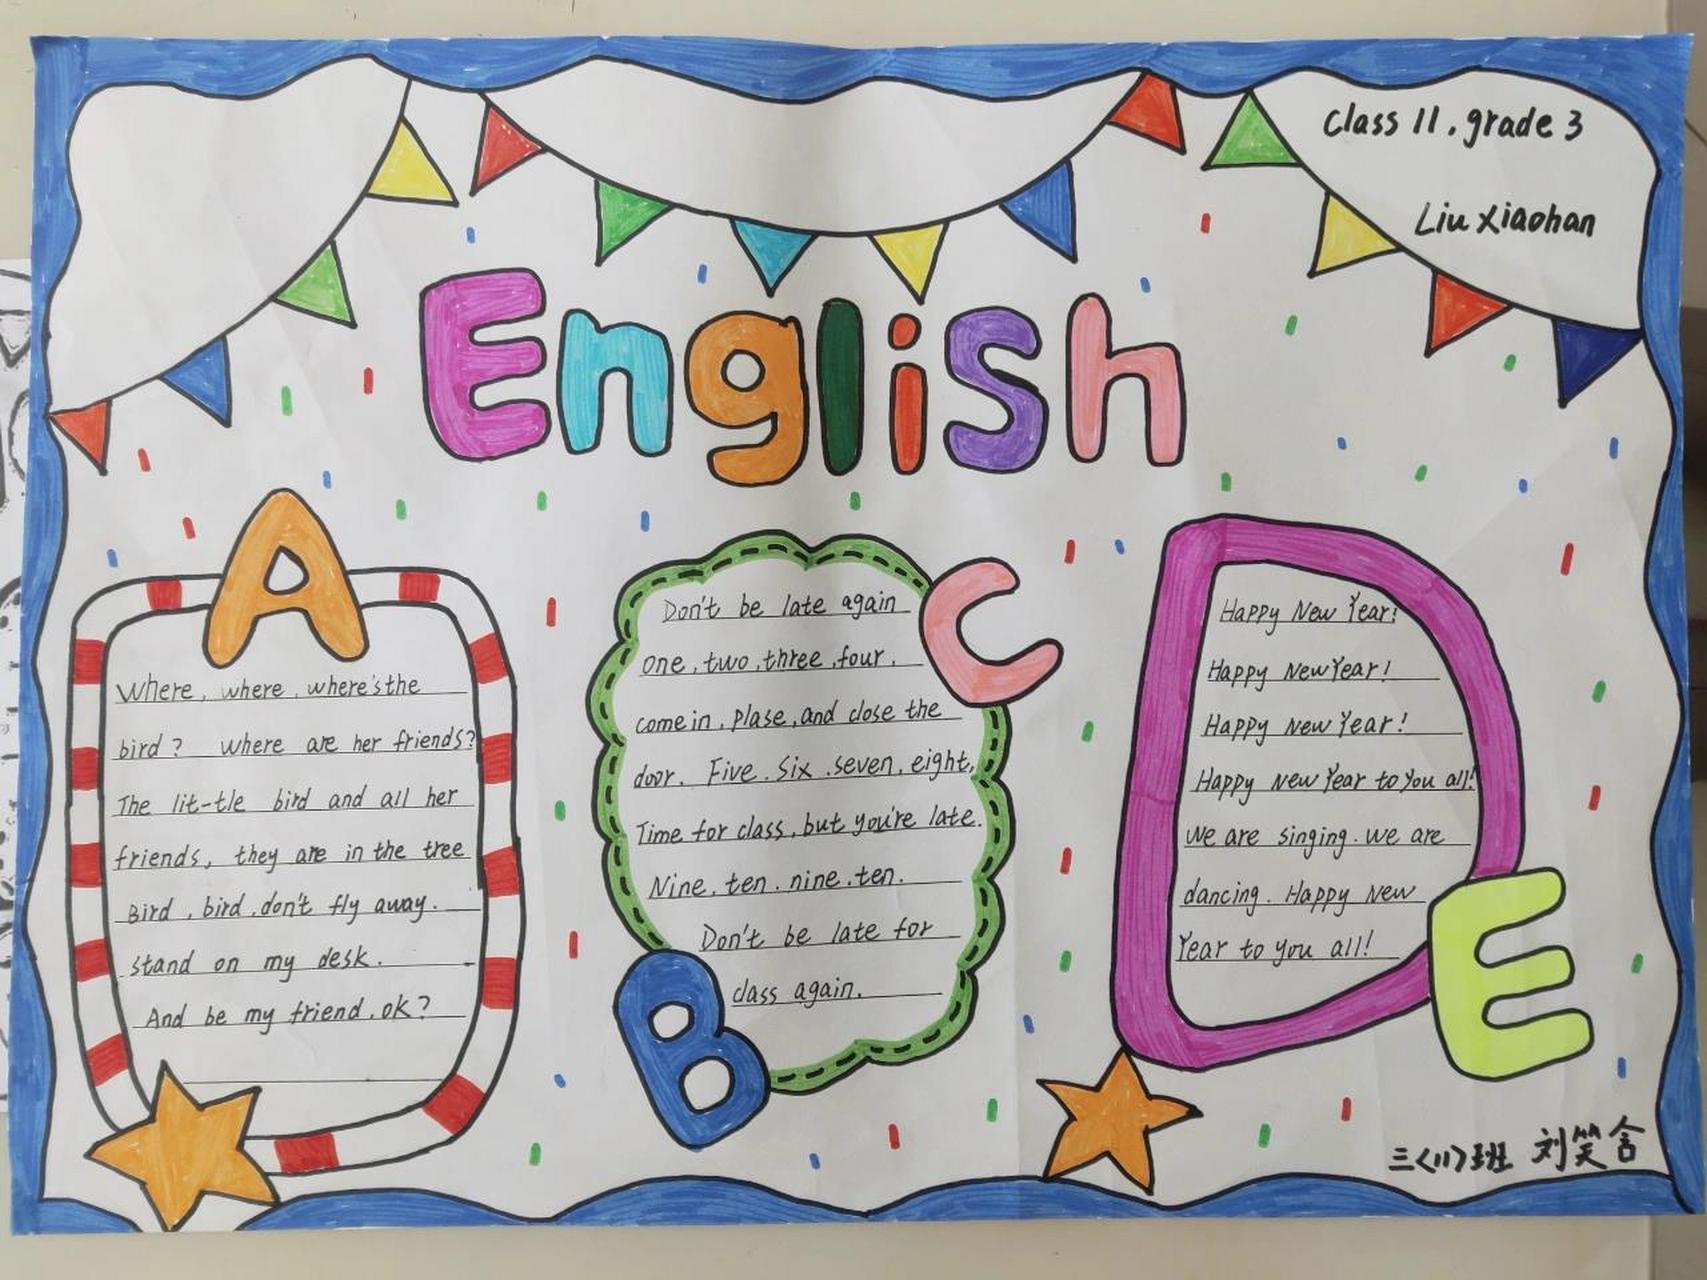 Class 11, grade 3
Liu Xiaohan
English
A
Where, where, where's the
bird? where are her friends?
The lit-tle bird and all her
friends, they are in the tree
Bird, bird, don't fly away.
stand on my desk.
And be my friend, ok?
C
Don't be late again
one, two, three, four,
come in, plase, and close the
door. Five, six, seven, eight,
Time for class, but you're late.
Nine, ten, nine, ten.
Don't be late for
class again.
B
D
Happy New Year!
Happy New Year!
Happy New Year!
Happy New Year to You all!
we are singing. we are
dancing. Happy New
Year to you all!
E
三<11>班 刘笑含